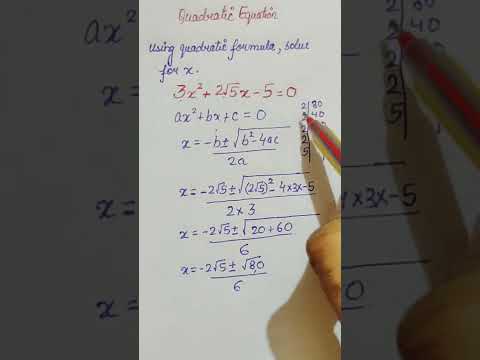 Quadratic Equation
Using quadratic formula, solve
for x.
3x²+2√5x-5=0
ax²+bx+c=0
x = -b±√b²-4ac
2a
x = -2√5±√(2√5)²-4×3x-5
2×3
x = -2√5±√20+60
6
x = -2√5±√80
6
2|80
40
2
2
5